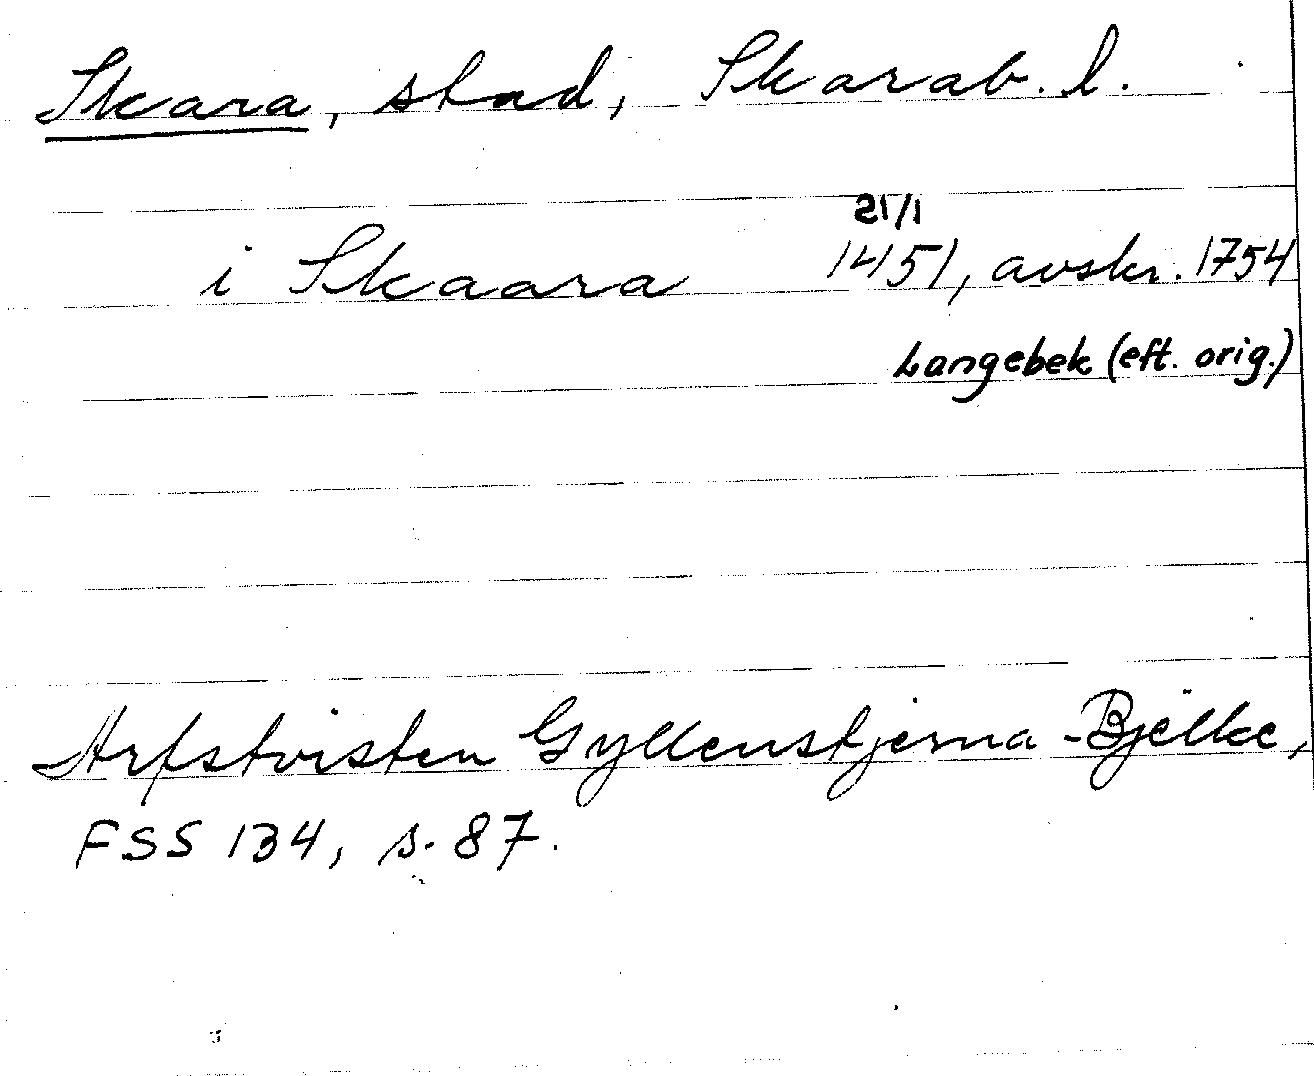 Skara, stad, Skarab. l.
21/1
i Skaara 1451, avskr. 1754
Langebek (eft. orig.)
Arfstvisten Gyllenstjerna-Bjelke,
FSS 134, s. 87.